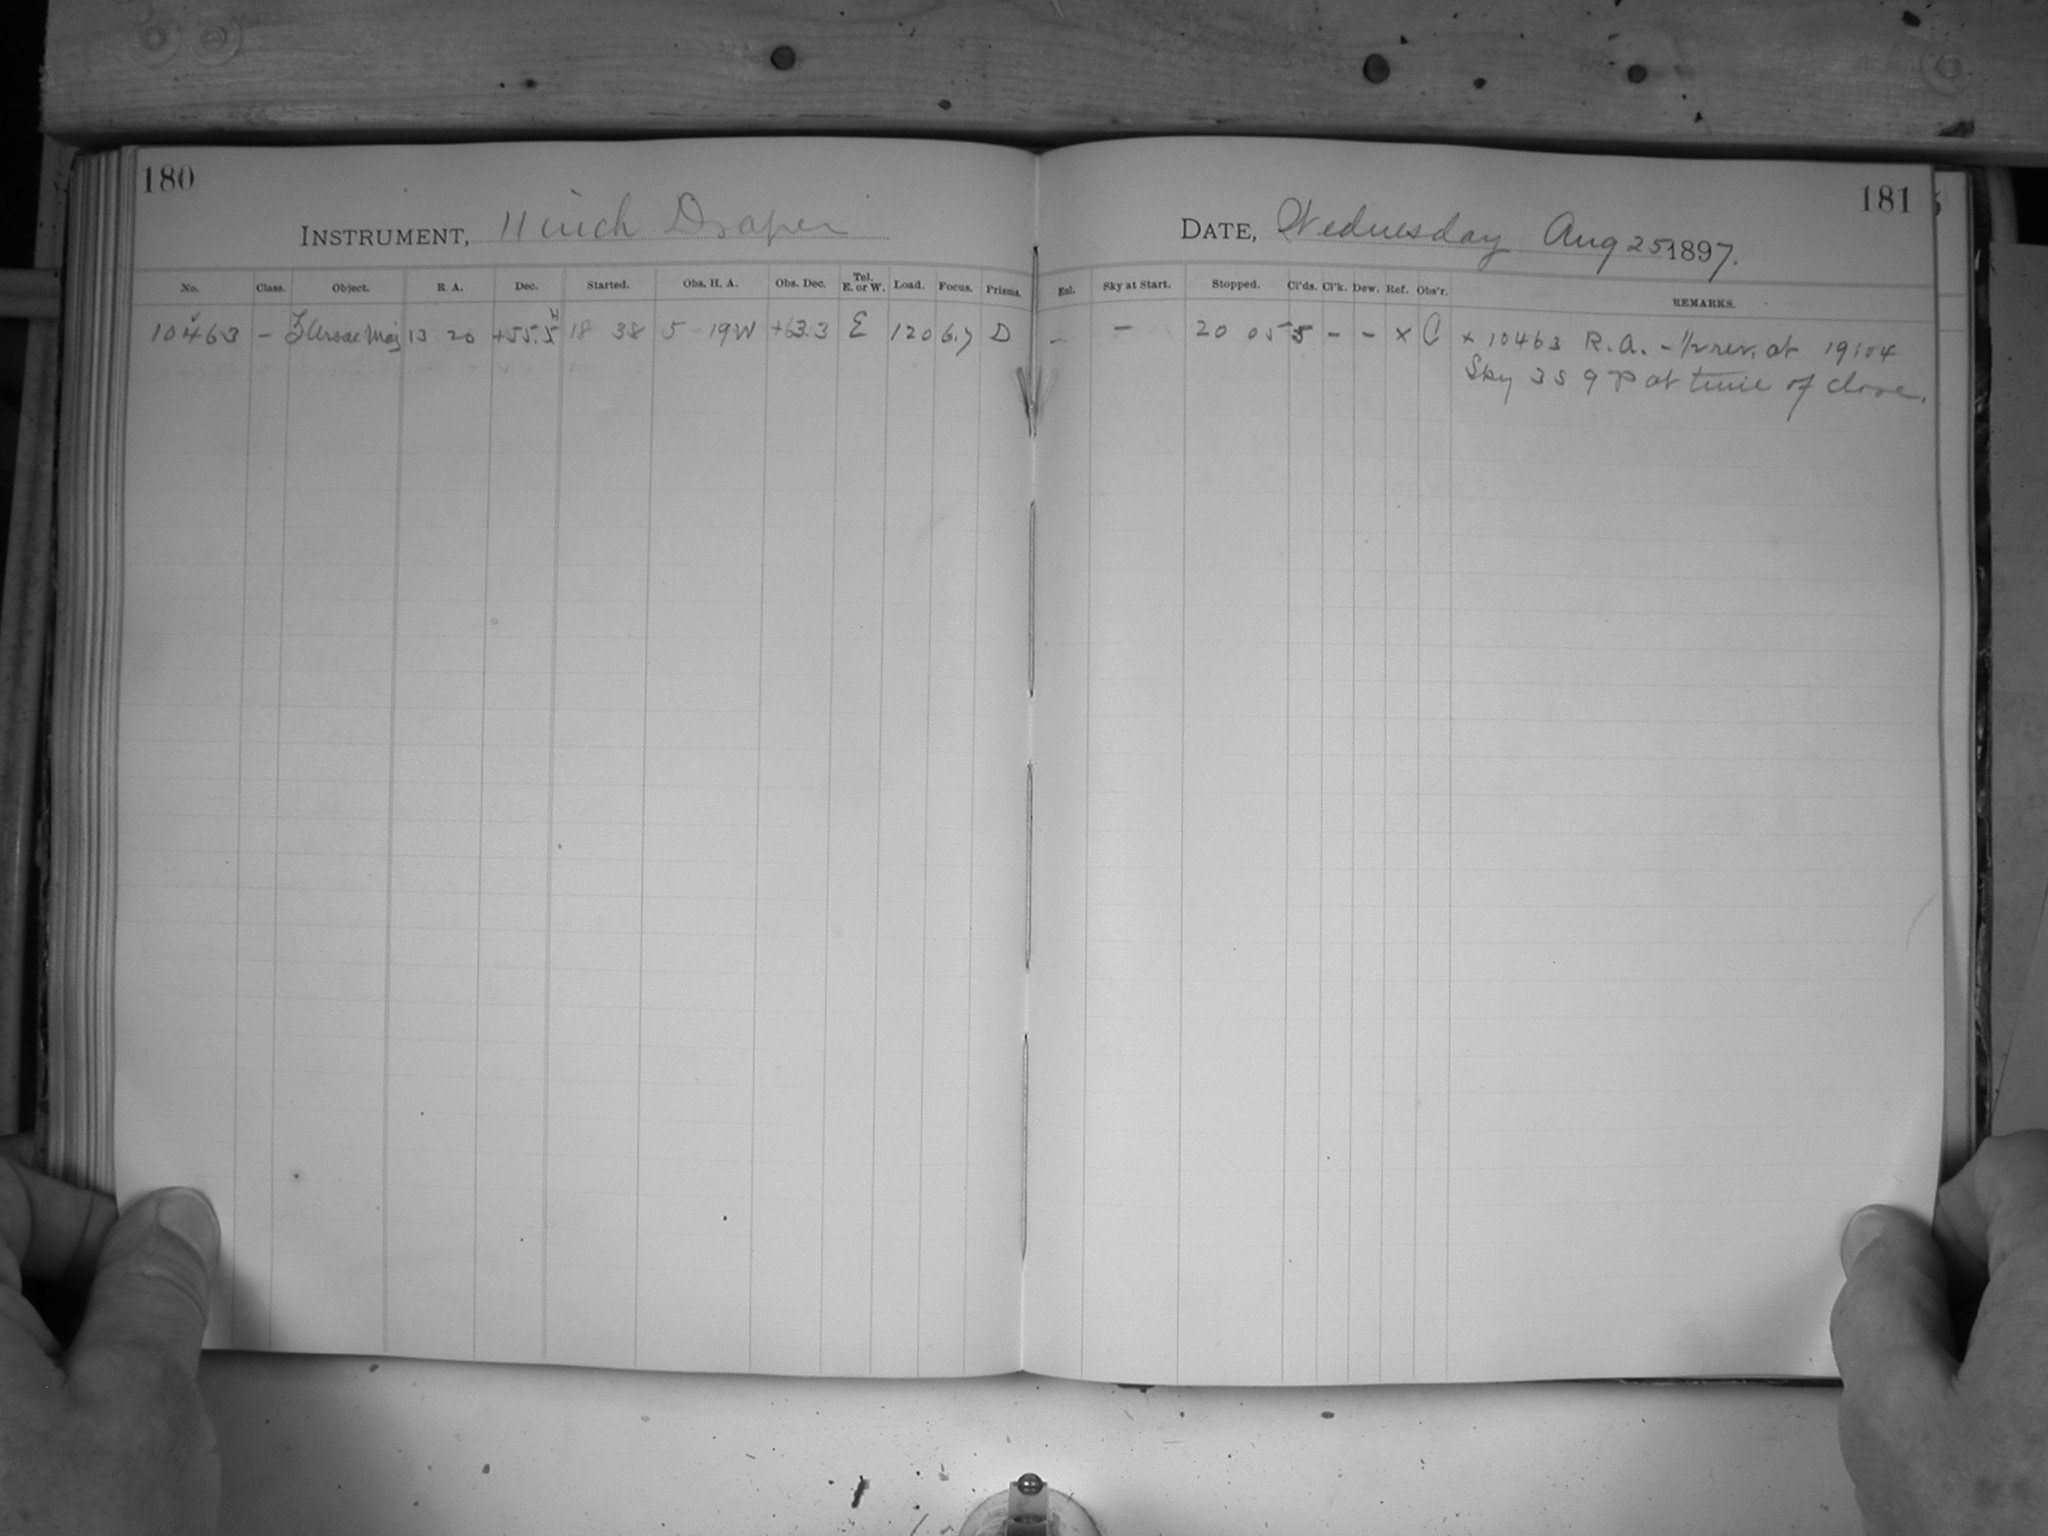 180
INSTRUMENT, 11 inch Draper
No. Class. Object. R. A. Dec. Started. Obs. H. A. Obs. Dec. Tel. E. or W. Load. Focus. Prisms.
10463 – ζ Ursae Maj 13 20 +55.5 18 38 5 19W +63.3 E 120 6.7 D
181
DATE, Wednesday Aug 25 1897.
Enl. Sky at Start. Stopped. Cl'ds. Cl'k. Dew. Ref. Obs'r. REMARKS.
– – 20 05 5 – – x C x 10463 R.A. – 1/2 rev. at 19:04
Sky 3 S 9 P at time of close.